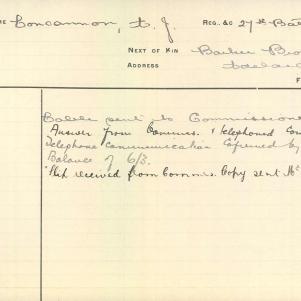 ME Concannon, T. J. REG. &C 27th Bat
NEXT OF KIN Barker Bro
ADDRESS Adelaid
F
Cable sent to Commissione
Answer from Commrs. & telephoned Con
Telephone Communication Confirmed by
Balance of 6/3.
received from Commrs. Copy sent